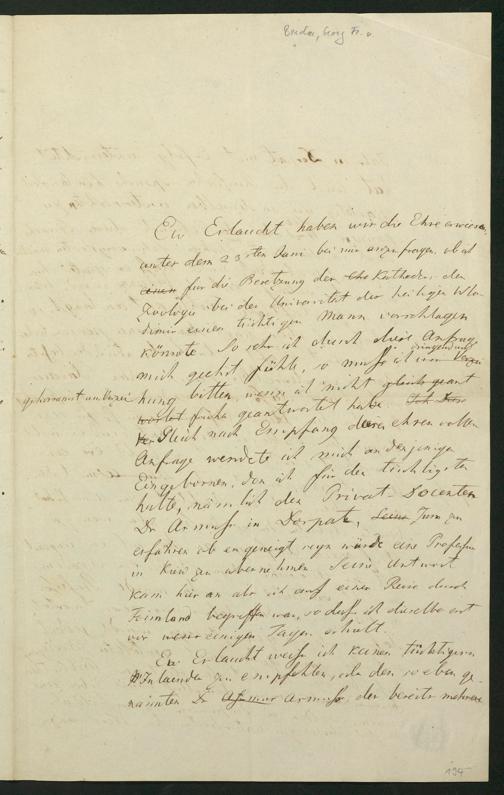 Ew Erlaucht haben mir die Ehre erwiesen
unter dem 23sten Juni bei mir anzufragen, ob ich
für die Besetzung der Katheder der
Zoologie bei der Universität des heiligen Wla-
dimir einen tüchtigen Mann vorschlagen
könnte. So sehr ich durch diese Anfrage
mich geehrt fühle, so muss ich um Verzei
hung bitten, wenn ich nicht gleich geant
wortet früher geantwortet habe.
gehorsamst um Verzei
Gleich nach Empfang der ehrenvollen
Anfrage wendete ich mich an denjenigen
Eingebornen, den ich für den tüchtigsten
halte, nämlich den Privat-Docenten
Dr Asmuss in Dorpat, um zu
erfahren ob er geneigt seyn würde eine Professur
in Kiew zu übernehmen. Seine Antwort
kam hier an als ich auf einer Reise durch
Finnland begriffen war, so dass ich dieselbe erst
vor wenigen Tagen erhielt.
Ew Erlaucht weiss ich keinen tüchtigern
Inlaender zu empfehlen, als den so eben ge-
nannten Dr Asmuss, der bereits mehrere
194